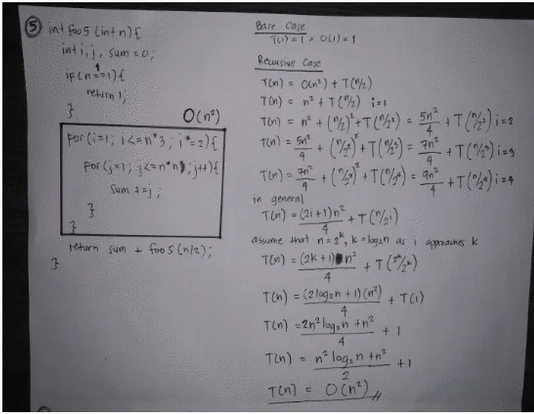 ⑤ int foo5 (int n){
int i, j, sum = 0;
if (n == 1){
return 1;
}
O(n²)
for (i=1; i<=n*3; i*=2){
for (j=1; j<=n*n; j++){
sum += j;
}
}
return sum + foo5(n/2);
}
Base Case
T(1) = 1 = O(1) = 1
Recursive Case
T(n) = O(n²) + T(n/2)
T(n) = n² + T(n/2) i=1
T(n) = n² + (n/2)² + T(n/2²) = 5n²/4 + T(n/2²) i=2
T(n) = 5n²/4 + (n/2)² + T(n/2³) = 7n²/4 + T(n/2³) i=3
T(n) = 7n²/4 + (n/2)² + T(n/2⁴) = 9n²/4 + T(n/2⁴) i=4
in general
T(n) = (2i+1)n²/4 + T(n/2ⁱ)
assume that n=2ᵏ, k=log₂n as i approaches k
T(n) = (2k+1)n²/4 + T(2ᵏ/2ᵏ)
T(n) = (2log₂n+1)(n²)/4 + T(1)
T(n) = 2n²log₂n+n²/4 + 1
T(n) = n²log₂n+n²/2 + 1
T(n) = O(n²)